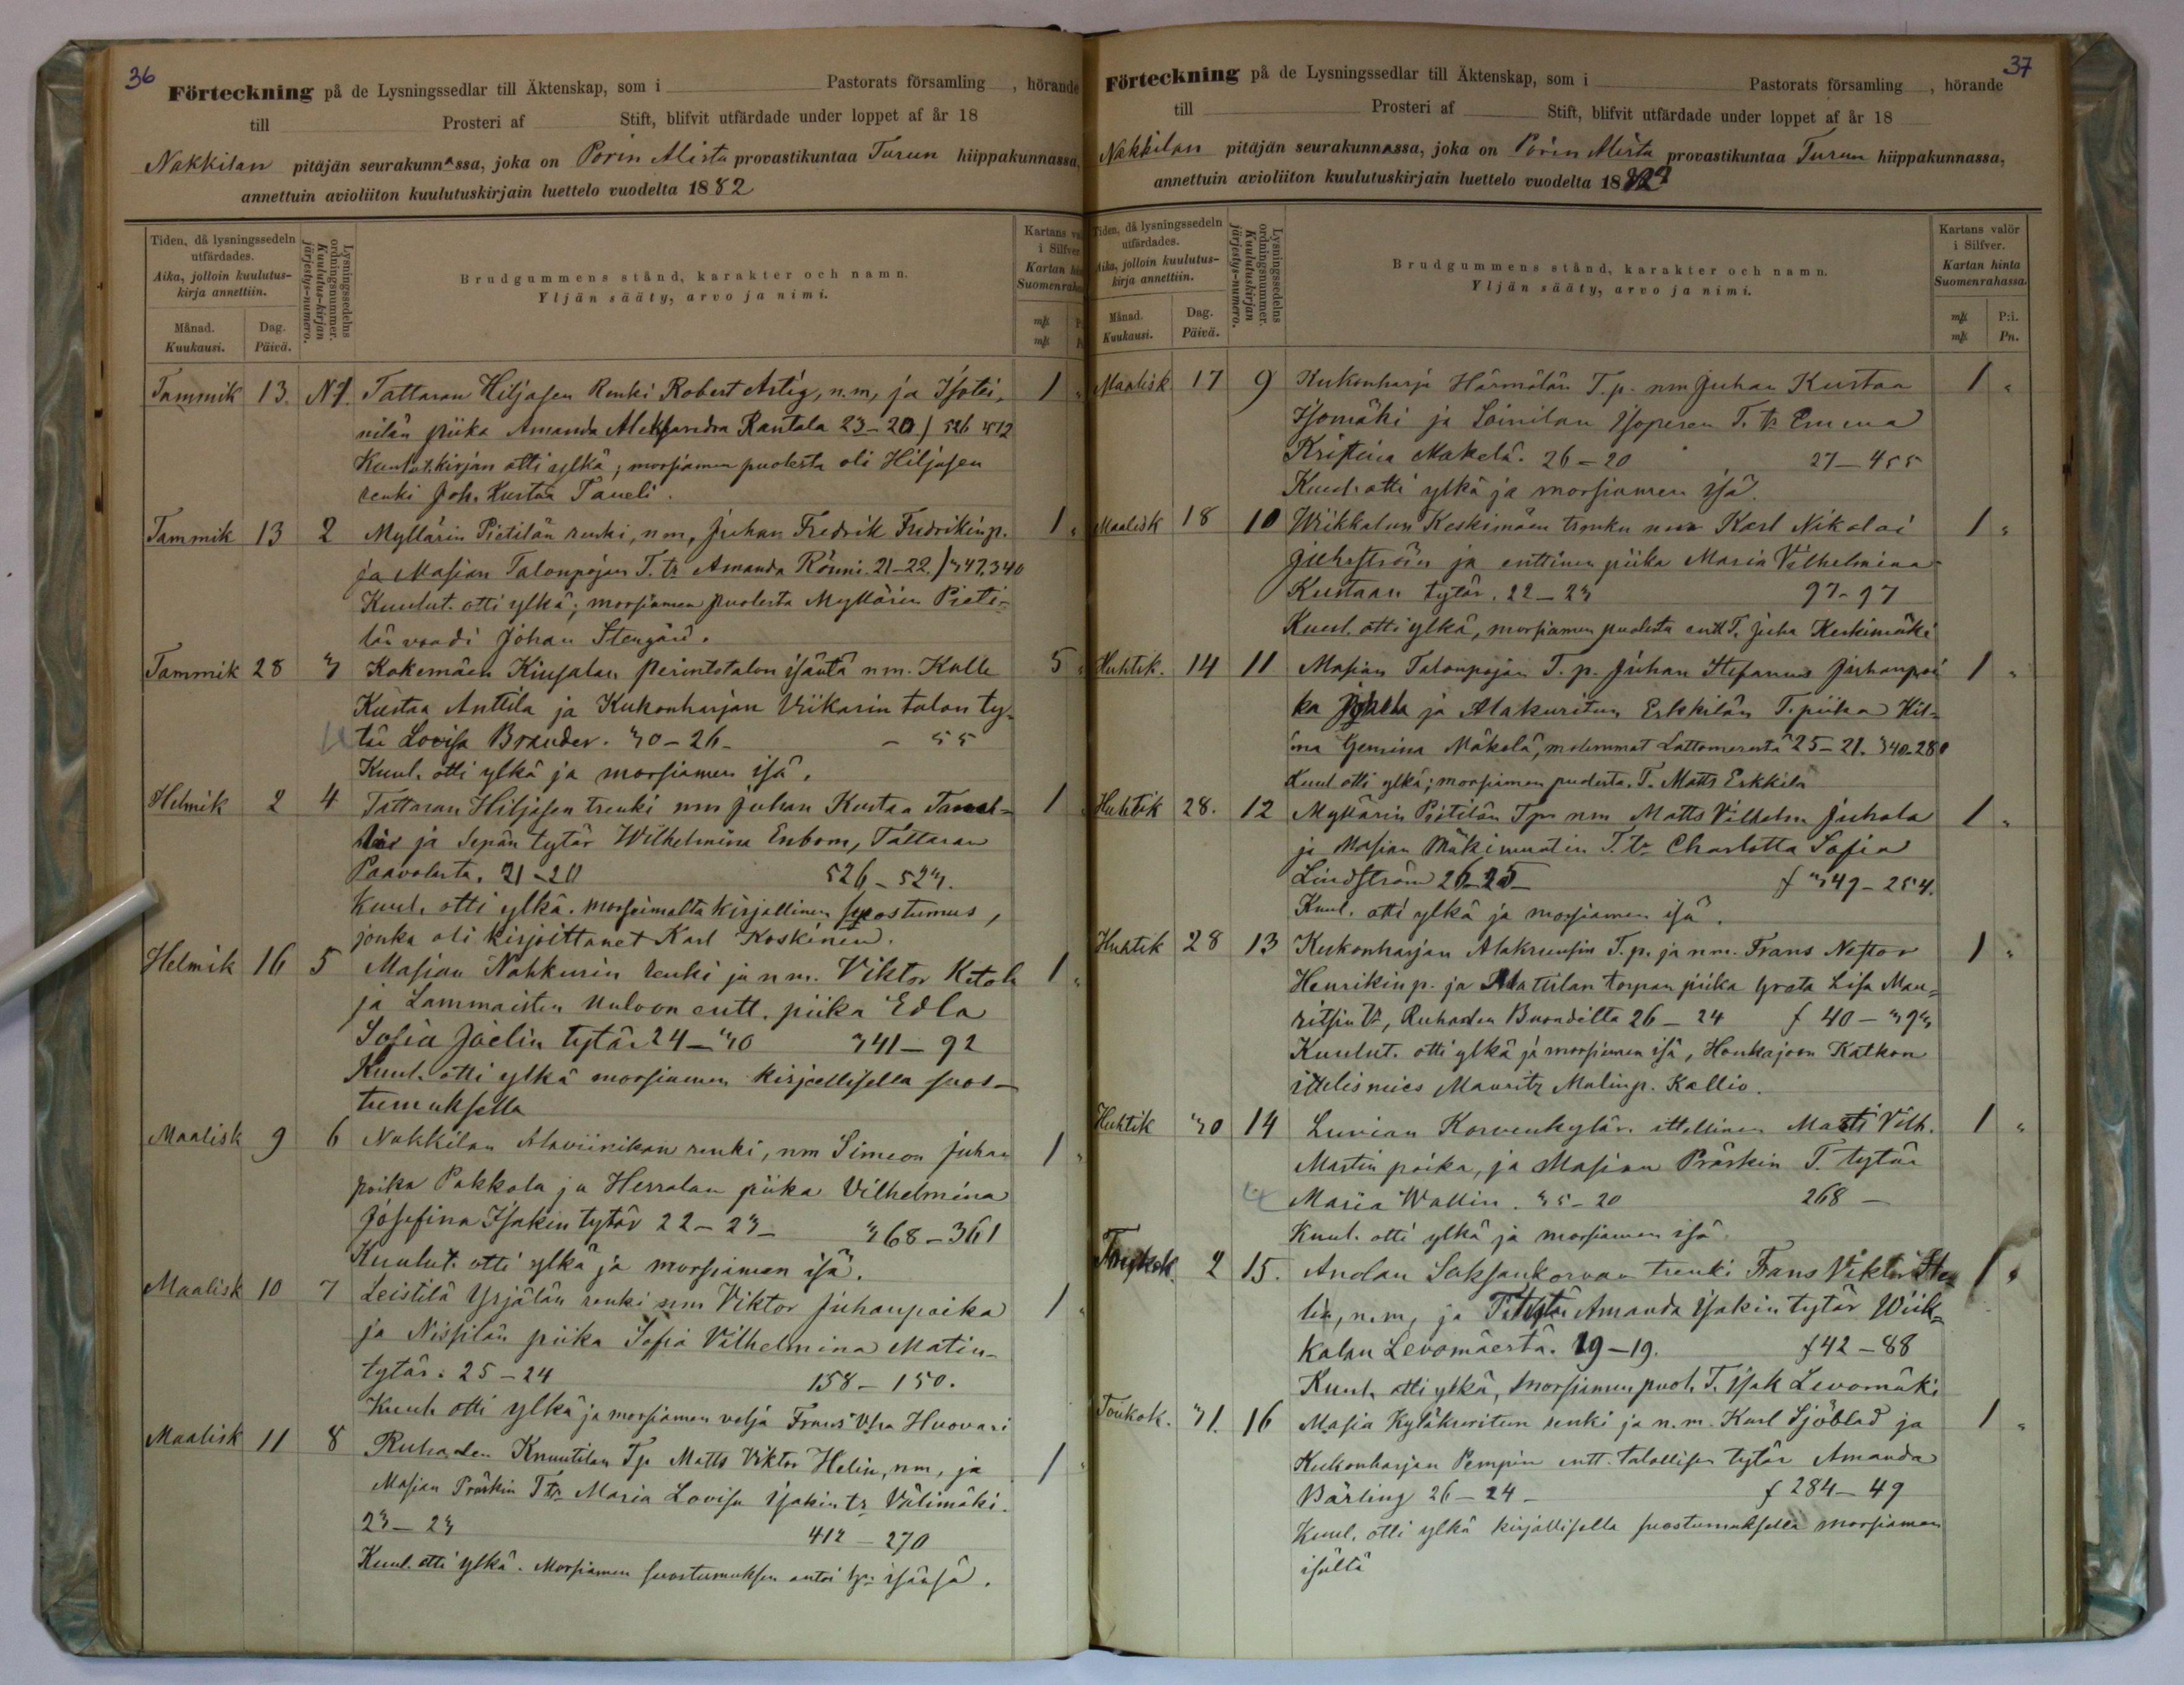 36
Förteckning på de Lysningssedlar till Äktenskap, som i Pastorats församling , hörande
till Prosteri af Stift, blifvit utfärdade under loppet af år 18
Nakkilan pitäjän seurakunnassa, joka on Porin Alista provastikuntaa Turun hiippakunnassa,
annettuin avioliiton kuulutuskirjain luettelo vuodelta 1882
Tiden, då lysningssedeln utfärdades.
Aika, jolloin kuulutus-kirja annettiin.
Månad. Kuukausi.
Dag. Päivä.
Lysningssedelns ordningsnummer.
Kuulutus-kirjan järjestys-numero.
Brudgummens stånd, karakter och namn.
Yljän sääty, arvo ja nimi.
Kartans
i Silfver
Kartan
mk
mk
Tammik 13. N 1. Tattaran Hiljasen Renki Robert Artig, n.m, ja Isotei, 1
nilän piika Amanda Aleksandra Rantala 23-20 526 512
Kuulut.kirjan otti ylkä; morsiamen puolesta oli Hiljasen
renki Joh. Kustaa Taneli.
Tammik 13 2 Myllärin Pietilän renki, nm, Juhan Fredrik Fredrikinp. 1
ja Masian Talonpojan T. tr Amanda Rönni. 21-22. 347.340
Kuulut. otti ylkä; morsiamen puolesta Myllärin Pieti-
län vaadi Johan Stengård.
Tammik 28 3 Kokemäen Kiusalan perintotalon isäntä nm. Kalle 5
Kustaa Anttila ja Kukonharjan Viikarin talon ty-
tär Lovisa Brander. 30-26- - 55
Kuul. otti ylkä ja morsiamen isä.
Helmik 2 4 Tattaran Hiljasen trenki nm Juhan Kustaa 1
ja Sepän tytär Wilhelmina Enbom, Tattaran
Paavolasta. 21-20 526-523.
Kuul. otti ylkä. morseimelta kirjallinen suostumus,
jonka oli kirjoittanet Karl Koskinen.
Helmik 16 5 Masian Nahkurin renki ja nm. Viktor Ketola 1
ja Lammaisten Uuloon entt. piika Edla
Sofia Joelin tytär 24-30 341-92
Kuul. otti ylkä morsiamen kirjaellisella suos-
tumuksella
Maalisk 9 6 Nakkilan Alaviinikan renki, nm Simeon Juhan 1
poika Pakkola ja Herralan piika Vilhelmina
Josefina Isakin tytär 22-23- 368-361
Kuulut. otti ylkä ja morsiamen isä.
Maalisk 10 7 Leistilä Yrjälän renki nm Viktor Juhanpoika 1
ja Nissilän piika Sofia Vilhelmina Matin-
tytär: 25-24 158-150.
Kuul. otti ylkä ja morsiamen velja Frans Vha Huovari
Maalisk 11 8 Ruhaden Knuutilan Tp Matts Viktor Helin, nm, ja 1
Masian Präskin Ttr Maria Lovisa Isakin tr Välimäki.
23-23 412-270
Kuul. otti ylkä. Morsiamen suostumuksen antoi isänsä.
37
Förteckning på de Lysningssedlar till Äktenskap, som i Pastorats församling , hörande
till Prosteri af Stift, blifvit utfärdade under loppet af år 18
Nakkilan pitäjän seurakunnassa, joka on Porin Alista provastikuntaa Turun hiippakunnassa,
annettuin avioliiton kuulutuskirjain luettelo vuodelta 18
Tiden, då lysningssedeln utfärdades.
Aika, jolloin kuulutus-kirja annettiin.
Månad. Kuukausi.
Dag. Päivä.
Lysningssedelns ordningsnummer.
Kuulutuskirjan järjestys-numero.
Brudgummens stånd, karakter och namn.
Yljän sääty, arvo ja nimi.
Kartans valör i Silfver.
Kartan hinta Suomenrahassa.
mk P:i.
mk Pn.
Maalisk 17 9 Kukonharja Härmälän T.p. nm Juhan Kustaa 1 "
Isomäki ja Soinilan Isoperen T. tr Emma
Kristina Makelä. 26-20 27-455
Kuul. otti ylkä ja morsiamen isä.
Maalisk 18 10 Wiikkalan Keskimäen trenki nm Karl Nikolai 1 "
Juhrström ja enttinen piika Maria Vilhelmina
Kustaan tytär. 22-23 97-97
Kuul. otti ylkä, morsiamen puolesta entt T. Juha Keskimäki
Huhtik. 14 11 Masian Talonpojan T.p. Juhan Stefanus Juhanpoi 1 "
ka ja Alakuritun Erkkilän T. piika Hil-
ma Gemina Mäkelä, molemmat Lattomerestä 25-21. 340-280
Kuul otti ylkä; morsiamen puolesta. T. Matts Erkkilä
Huhtik 28. 12 Myllärin Pietilän Tpr nm Matts Vilhelm Juhola 1 "
ja Masian Mäkimaatin T. tr Charlotta Sofia
Lindström 26-25- f 349-254.
Kuul. otti ylkä ja morsiamen isä.
Huhtik 28 13 Kukonharjan Alakruusin T.p. ja nm. Frans Nestor 1 "
Henrikin p. ja Mattilan torpan piika Greta Lisa Mau-
ritsin tr, Ruhaden 26-24 f 40-393
Kuulut. otti ylkä ja morsiamen isä, Honkajoen Katkon
ittelismies Mauritz Malinp. Kallio.
Huhtik 30 14 Luvian Korvenkylän ittellinen Matti Vilh. 1 "
Martin poika, ja Masian Präskin T. tytär
Maria Wallin. 35-20 268-
Kuul. otti ylkä ja morsiamen isä.
Toukok. 2 15. Anolan Saksankorvan trenki Frans Viktor 1 "
lin, n.m, ja T. tytär Amanda Isakin tytär Wiik-
kalan Levomäestä. 19-19. f 42-88
Kuul. otti ylkä, Morsiamen puol. T. Isak Levomäki
Toukok. 31. 16 Masia Kyläkuritun renki ja n.m. Karl Sjöblad ja 1 "
Kukonharjan Pempin entt. talollisen tytär Amanda
Bärling 26-24- f 284-49
Kuul. otti ylkä kirjallisella suostumuksella morsiamen
isältä